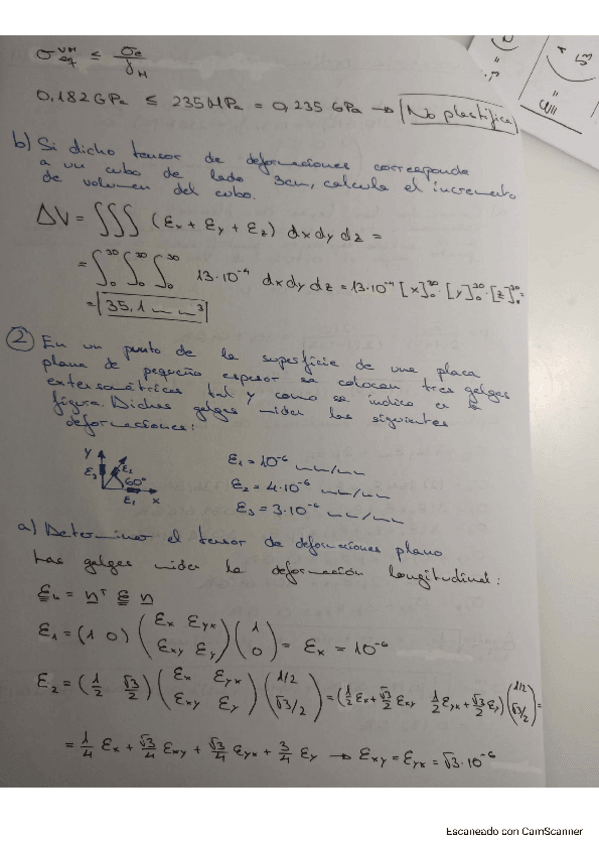 σ_eq^VM ≤ σe/γM
0,182 GPa ≤ 235 MPa = 0,235 GPa → No plastifica
b) Si dicho tensor de deformaciones corresponda
a un cubo de lado 3cm, calcula el incremento
de volumen del cubo.
ΔV = ∫∫∫ (εx + εy + εz) dx dy dz =
= ∫₀³⁰ ∫₀³⁰ ∫₀³⁰ 13·10⁻⁴ dx dy dz = 13·10⁻⁴ [x]₀³⁰ · [y]₀³⁰ · [z]₀³⁰ =
= 35,1 mm³
2 En un punto de la superficie de una placa
plana de pequeño espesor se colocan tres galgas
extensométricas tal y como se indica en la
figura. Dichas galgas miden las siguientes
deformaciones:
y
ε3 ε2 60°
ε1 x
ε1 = 10⁻⁶ mm/mm
ε2 = 4·10⁻⁶ mm/mm
ε3 = 3·10⁻⁶ mm/mm
a) Determinar el tensor de deformaciones plano
Las galgas miden la deformación longitudinal:
εn = nᵀ ε n
ε1 = (1 0) (εx εyx; εxy εy) (1; 0) = εx = 10⁻⁶
ε2 = (1/2 √3/2) (εx εyx; εxy εy) (1/2; √3/2) = (1/2 εx + √3/2 εxy 1/2 εyx + √3/2 εy) (1/2; √3/2) =
= 1/4 εx + √3/4 εxy + √3/4 εyx + 3/4 εy → εxy = εyx = √3·10⁻⁶
Escaneado con CamScanner